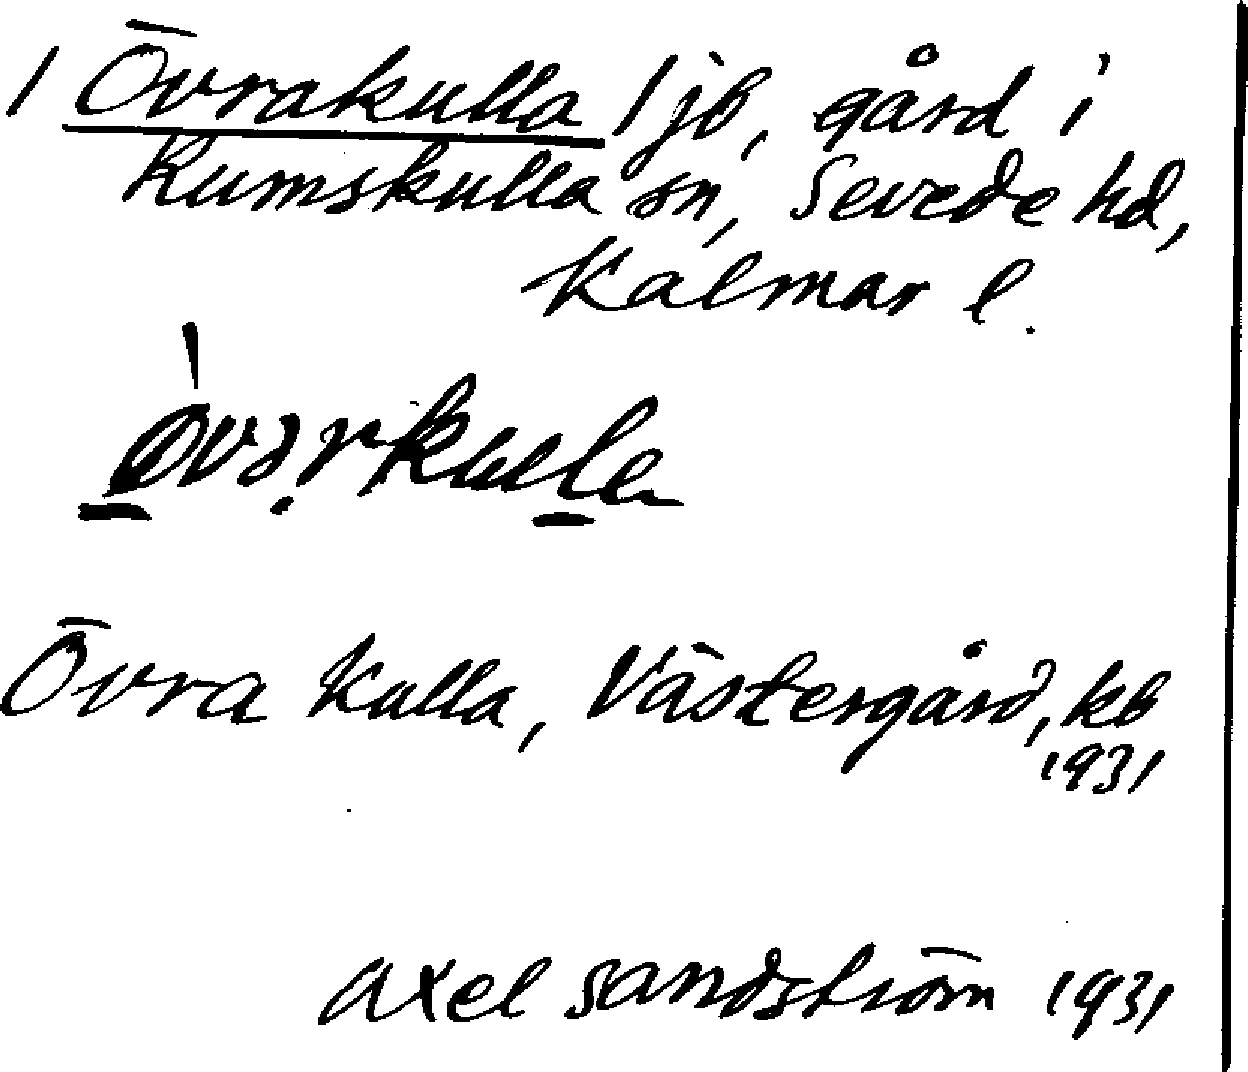 / Övrakulla / jb, gård i
Rumskulla sn, Sevede hd,
Kalmar l.
Övra Kulla, Västergård, kb
1931
Axel Sandström 1931